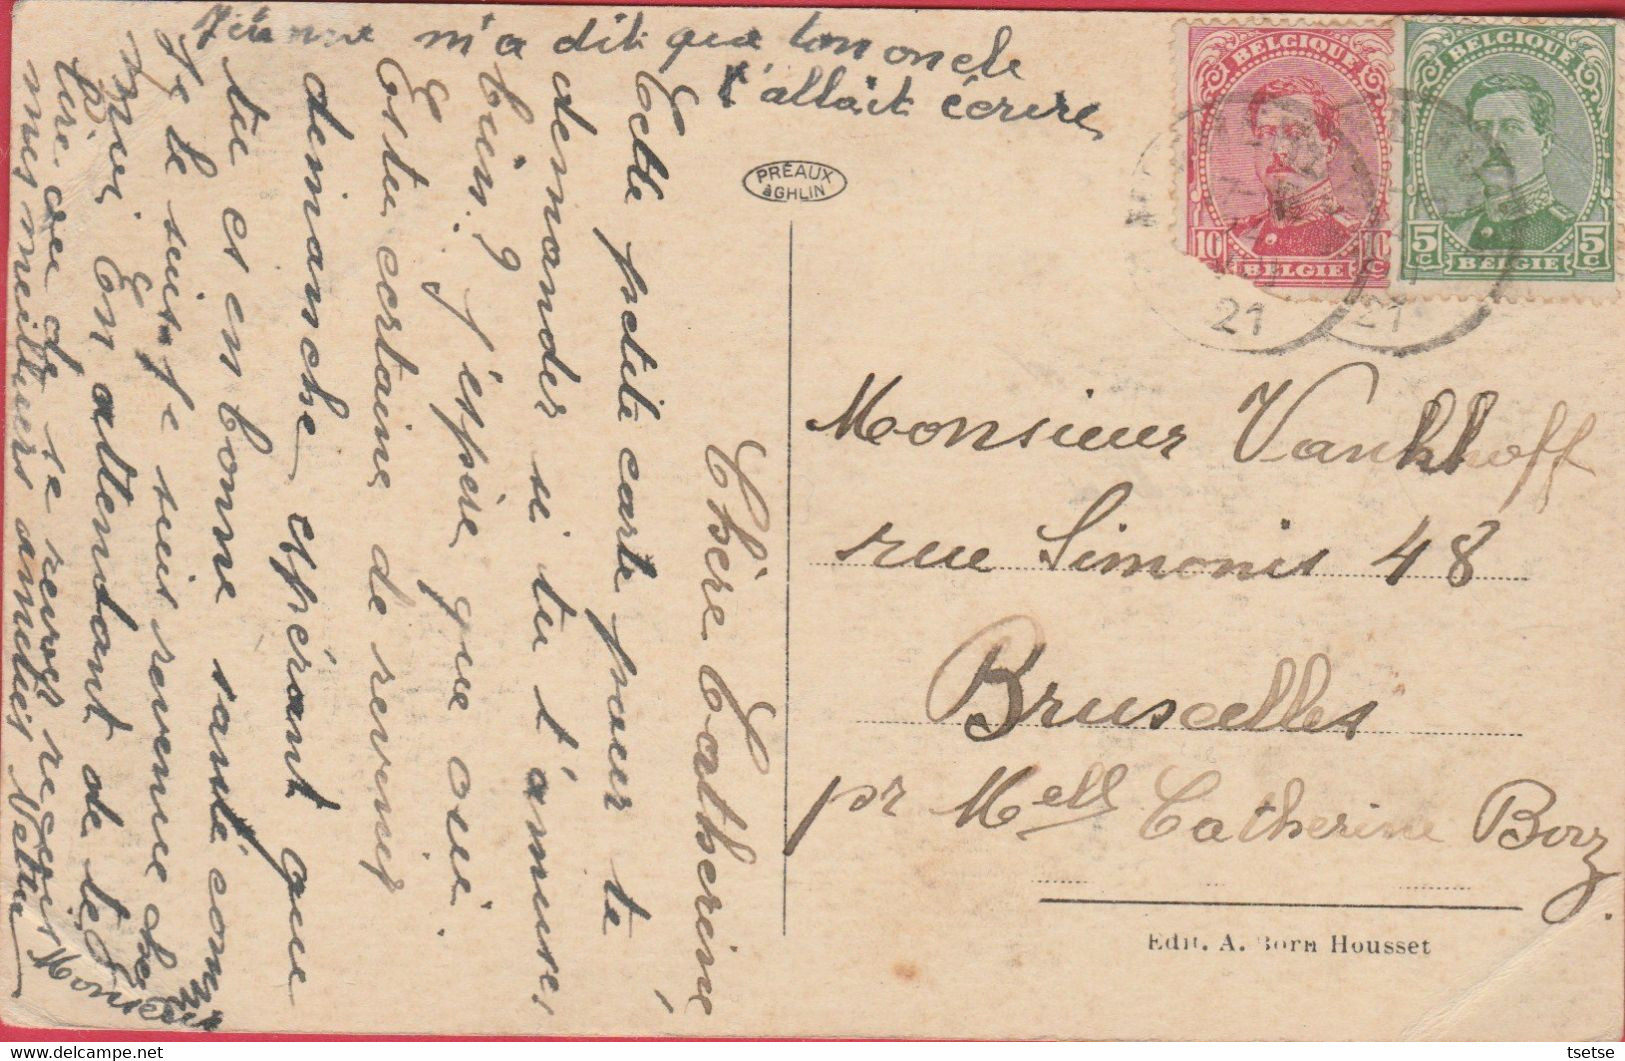 Jeanne m'a dit que ton oncle
t'allait écrire
Chère Catherine,
Cette petite carte pour te
demander si tu t'amuses
bien? J'espère que oui.
Estu certaine de revenir
dimanche espérant que
tu es en bonne santé comme
je le suis je suis revenue chez
moi. En attendant de te
lire ou de se revoir
mes meilleurs amitiés
Monsieur Vankhoff
rue Simonis 48
Bruxelles
pr Mell Catherine Borz.
PRÉAUX
à GHLIN
BELGIQUE
10 10 c
BELGIE
BELGIQUE
5 c 5 c
BELGIE
21
21
Edit. A. Born Housset
tsetse